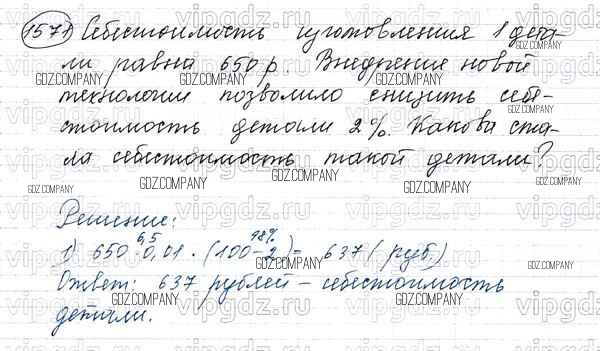 1571) Себестоимость изготовления 1 дета-
ли равна 650 р. Внедрение новой
технологии позволило снизить себе-
стоимость детали 2%. Какова ста-
ла себестоимость такой детали?
Решение:
6,5 98%
1) 650 · 0,01 · (100-2) = 637 (руб.)
Ответ: 637 рублей – себестоимость
детали.
vipgdz.ru
GDZ.COMPANY